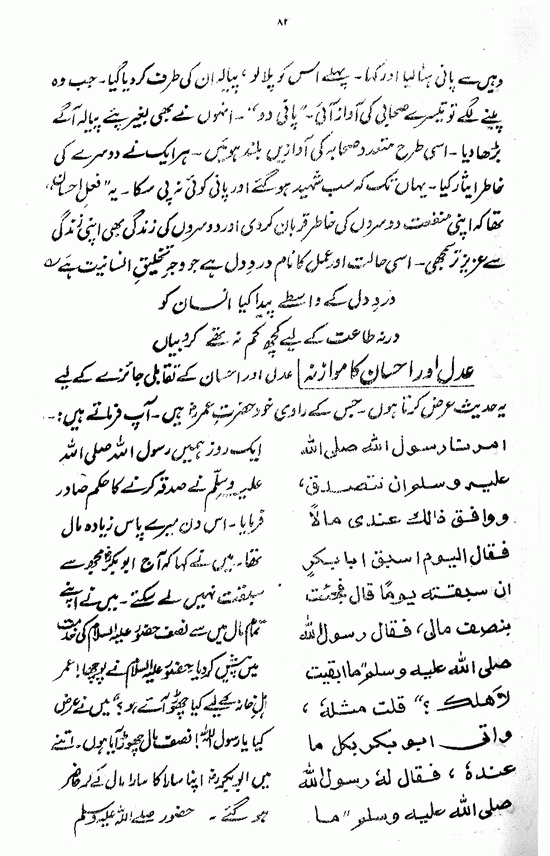 ۸۲
وہیں سے پانی ہٹا لیا اور کہا۔ پہلے اس کو پلا لو، پیالہ ان کی طرف کر دیا گیا۔ جب وہ
پینے لگے تو تیسرے صحابی کی آواز آئی۔ "پانی دو"۔ انہوں نے بھی بغیر پئے پیالہ آگے
بڑھا دیا۔ اسی طرح متعدد صحابہ کی آوازیں بلند ہوئیں۔ ہر ایک نے دوسرے کی
خاطر ایثار کیا۔ یہاں تک کہ سب شہید ہو گئے اور پانی کوئی نہ پی سکا۔ یہ "فعلِ احسان"
تھا کہ اپنی منفعت دوسروں کی خاطر قربان کر دی اور دوسروں کی زندگی بھی اپنی زندگی
سے عزیز تر سمجھی۔ اسی حالت اور عمل کا نام دردِ دل ہے جو وجہِ تخلیقِ انسانیت ہے
دردِ دل کے واسطے پیدا کیا انسان کو
ورنہ طاعت کے لیے کچھ کم نہ تھے کرّوبیاں
عدل اور احسان کا موازنہ عدل اور احسان کے تقابلی جائزے کے لیے
یہ حدیث عرض کرتا ہوں۔ جس کے راوی خود حضرت عمرؓ ہیں۔ آپ فرماتے ہیں:۔
امرنا رسول اللہ صلی اللہ
علیہ وسلم ان نتصدق،
ووافق ذالک عندی مالًا
فقال الیوم اسبق ابا بکرٍ
ان سبقتہ یومًا قال فجئت
بنصف مالی، فقال رسول اللہ
صلی اللہ علیہ وسلم "ما ابقیت
لاھلک ؟" قلت مثلہ ،
واتی ابو بکر بکل ما
عندہ ، فقال لہ رسول اللہ
صلی اللہ علیہ وسلم "ما
ایک روز ہمیں رسول اللہ صلی اللہ
علیہ وسلّم نے صدقہ کرنے کا حکم صادر
فرمایا۔ اس دن میرے پاس زیادہ مال
تھا۔ میں نے کہا کہ آج ابوبکرؓ مجھ سے
سبقت نہیں لے سکتے۔ میں نے اپنے
تمام مال میں سے نصف حضور علیہ السلام کی خدمت
میں پیش کر دیا۔ حضور علیہ السلام نے پوچھا! عمر
اہلِ خانہ کے لیے کیا چھوڑ آئے ہو؟" میں نے عرض
کیا یا رسول اللہ! نصف مال چھوڑ آیا ہوں۔ اتنے
میں ابوبکرؓ اپنا سارا کا سارا مال لے کر حاضر
ہو گئے۔ حضور صلے اللہ علیہ وسلم